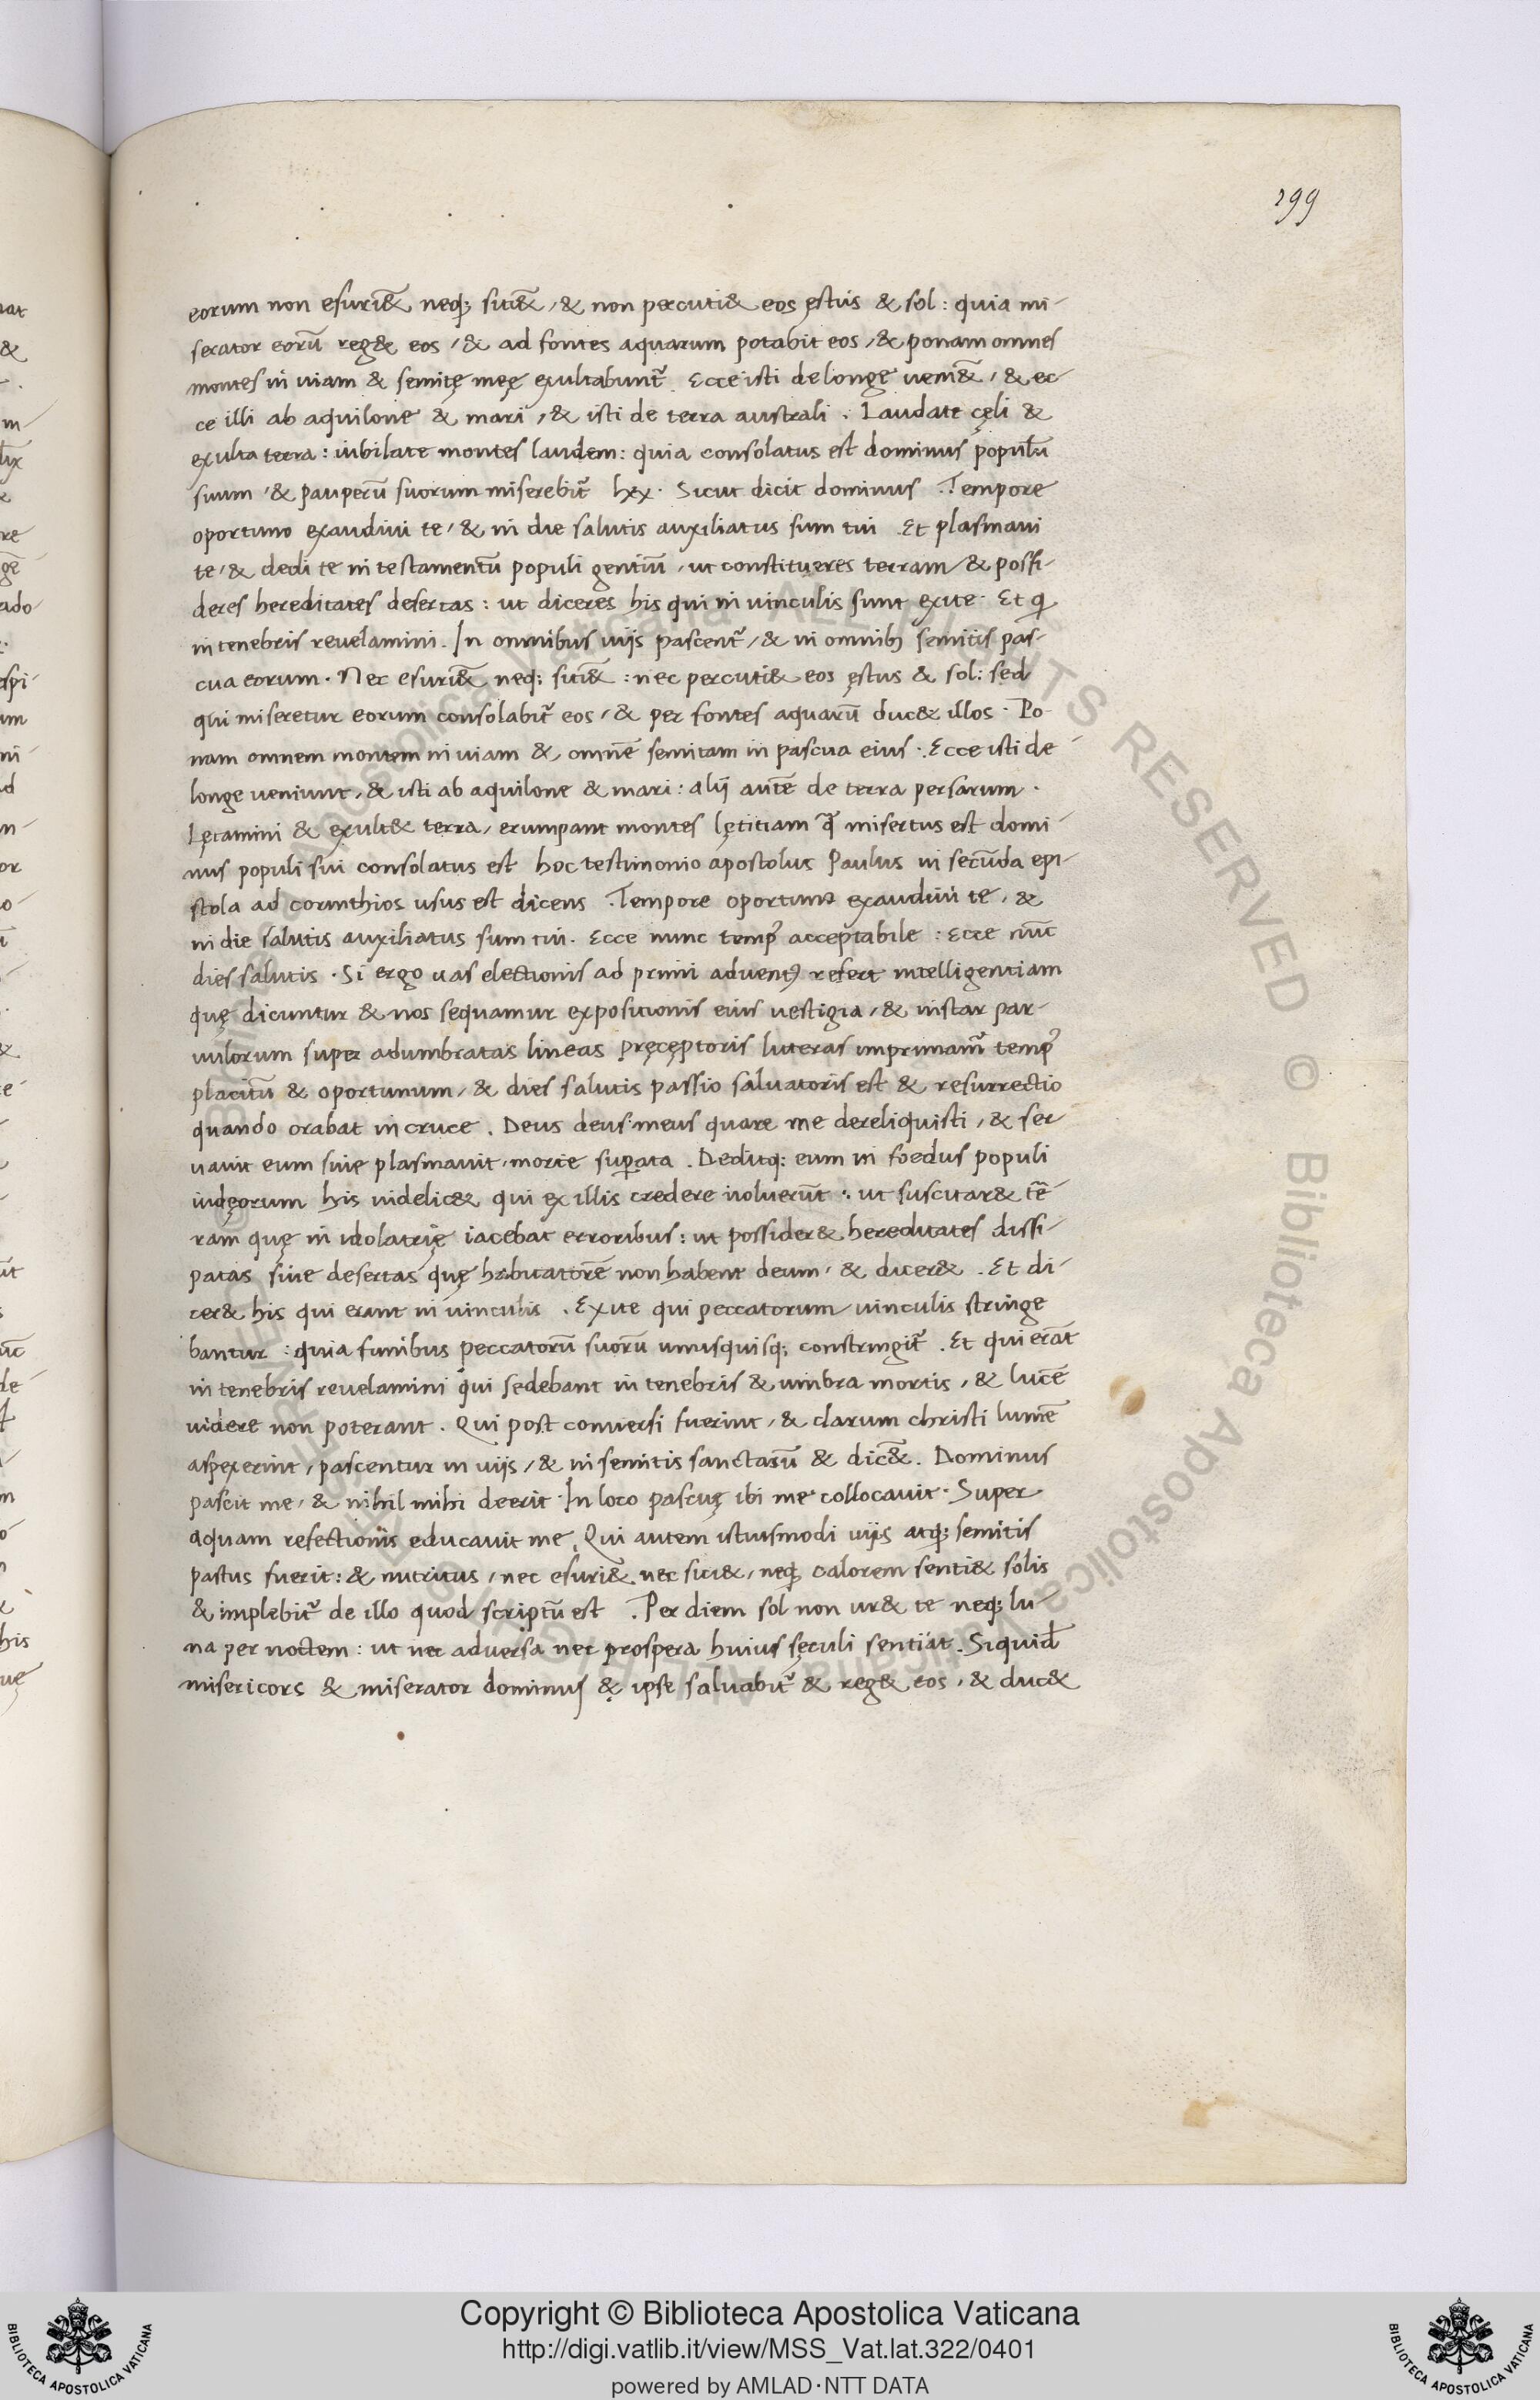 199
eorum non esuriẽ& neq; sitiẽ&, & non percuti& eos ęstus & sol: quia mi-
serator eorũ reg& eos, & ad fontes aquarum potabit eos, & ponam omnes
montes in uiam & semitę meę exultabunt᷑. Ecce isti de longe uenıẽ&, & ec-
ce illi ab aquilone & mari, & isti de terra australi. Laudate cęli &
exulta terra: iubilate montes laudem: quia consolatus est dominus populũ
suum, & pauperũ suorum miserebit᷑ lxx. Sicut dicit dominus. Tempore
oportuno exaudiui te, & in die salutis auxiliatus sum tui. Et plasmaui
te, & dedi te in testamentũ populi gentiũ, ut constitueres terram & possi-
deres hereditates desertas: ut diceres his qui in uinculis sunt exite. Et q̃
in tenebris reuelamini. In omnibus uijs pascent᷑, & in omnib; semitis pas-
cua eorum. Nec esuriẽ& neq; sitiẽ&: nec percuti& eos ęstus & sol: sed
qui miseretur eorum consolabit᷑ eos, & per fontes aquarũ duc& illos. Po-
nam omnem montem in uiam & omnẽ semitam in pascua eius. Ecce isti de
longe ueniunt, & isti ab aquilone & mari: alij autẽ de terra persarum.
Lętamini & exult& terra, erumpant montes lętitiam q̃ misertus est domi-
nus populi sui consolatus est hoc testimonio apostolus Paulus in secũda epi-
stola ad corinthios usus est dicens. Tempore oportuno exaudiui te, &
in die salutis auxiliatus sum tui. Ecce nunc temp᷒ acceptabile: Ecce nũc
dies salutis. Si ergo uas electionis ad primi aduent᷒ refert intelligentiam
quę dicuntur & nos sequamur expositionis eius uestigia, & instar par-
uulorum super adumbratas lineas pręcęptoris luteras imprimam᷒ temp᷒
placitũ & oportunum, & dies salutis passio saluatoris est & resurrectio
quando orabat in cruce. Deus deus meus quare me dereliquisti, & ser
uauit eum siue plasmauit, morte suꝑata. Deditq; eum in foedus populi
iudęorum his uidelic& qui ex illis credere uoluerũt: ut suscitar& tẽ
ram quę in idolatrię iacebat erroribus: ut possider& hereditates dissi-
patas siue desertas quę habitatorẽ non habent deum, & dicer&. Et di-
cer& his qui erant in uinculis. Exite qui peccatorum uinculis stringe
bantur: quia funibus peccatorũ suorũ unusquisq; constringit᷑. Et qui erãt
in tenebris reuelamini qui sedebant in tenebris & umbra mortis, & lucẽ
uidere non poterant. Qui post conuersi fuerint, & clarum christi lumẽ
aspexerint, pascentur in uijs, & in semitis sanctarũ & dicẽ&. Dominus
pascit me, & nihil mihi deerit. In loco pascuę ibi me collocauit. Super
aquam refectionis educauit me. Qui autem istiusmodi uijs atq; semitis
pastus fuerit: & nutritus, nec esuri& nec siti&, neq; calorem senti& solis
& implebit᷑ de illo quod scriptũ est. Per diem sol non ur& te neq; lu-
na per noctem: ut nec aduersa nec prospera huius sęculi sentiat. Siquid̃
misericors & miserator dominus & ipse saluabit᷑ & reg& eos, & duc&
Copyright © Biblioteca Apostolica Vaticana
http://digi.vatlib.it/view/MSS_Vat.lat.322/0401
powered by AMLAD·NTT DATA